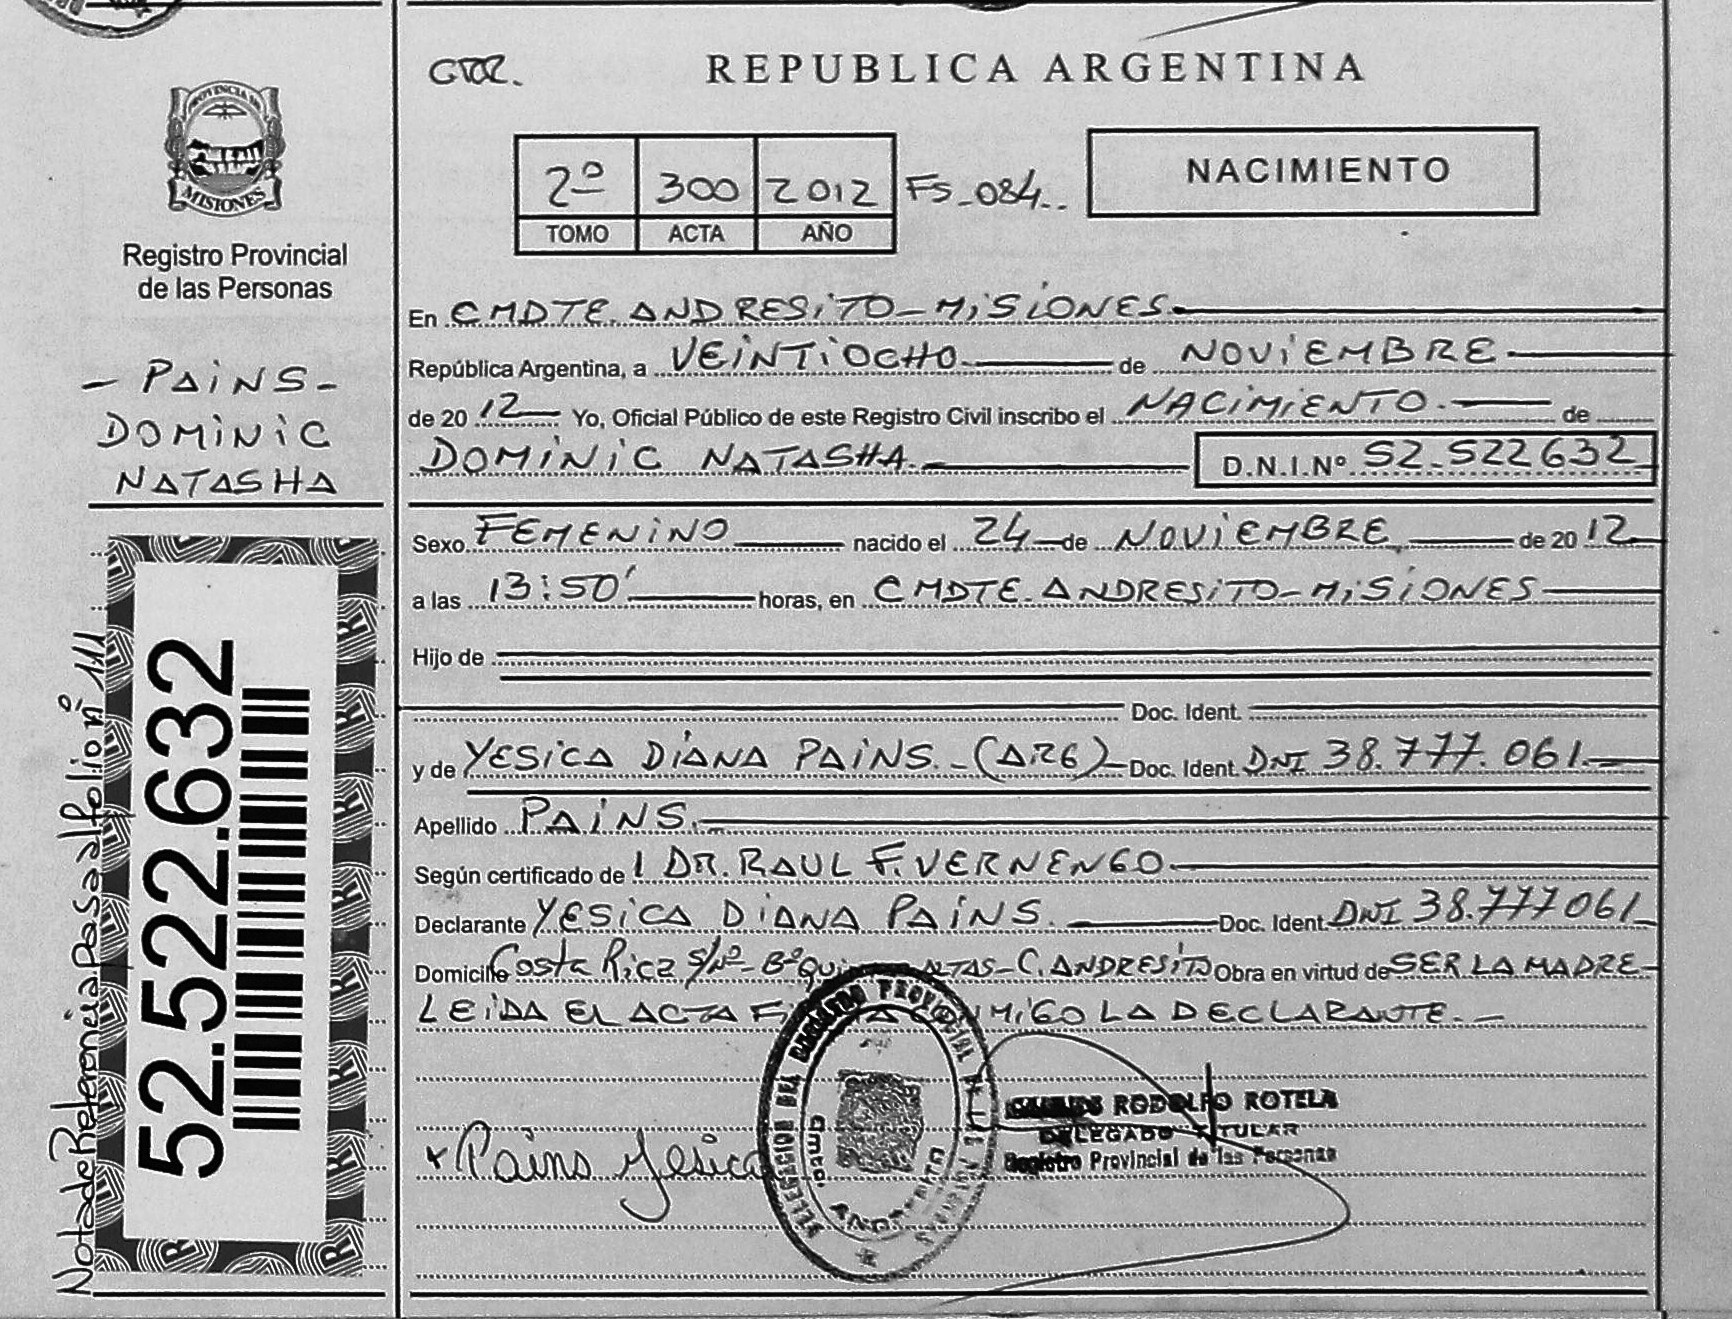 PROVINCIA DE
MISIONES
Registro Provincial
de las Personas
- PAINS -
DOMINIC
NATASHA
52.522.632
Nota de Referencia Pasa al folio nº 141
REPUBLICA ARGENTINA
2º 300 2012 Fs_084..
TOMO ACTA AÑO
NACIMIENTO
En CMDTE. ANDRESITO - MISIONES
República Argentina, a VEINTIOCHO de NOVIEMBRE
de 20 12 Yo, Oficial Público de este Registro Civil inscribo el NACIMIENTO. de
DOMINIC NATASHA. D.N.I.Nº 52.522632
Sexo FEMENINO nacido el 24 de NOVIEMBRE de 20 12
a las 13:50' horas, en CMDTE. ANDRESITO - MISIONES
Hijo de
Doc. Ident.
y de YESICA DIANA PAINS. - (ARG) Doc. Ident. DNI 38.777.061.
Apellido PAINS.
Según certificado de 1 DR. RAUL F. VERNENGO
Declarante YESICA DIANA PAINS. Doc. Ident. DNI 38.777061
Domicilio Costa Rica S/Nº - Bº C. ANDRESITO Obra en virtud de SER LA MADRE
LEIDA EL ACTA LA DECLARANTE. -
Pains Yesica
REGISTRO PROVINCIAL
Cmte. ANDRESITO
RODOLFO ROTELA
DELEGADO TITULAR
Registro Provincial de las Personas